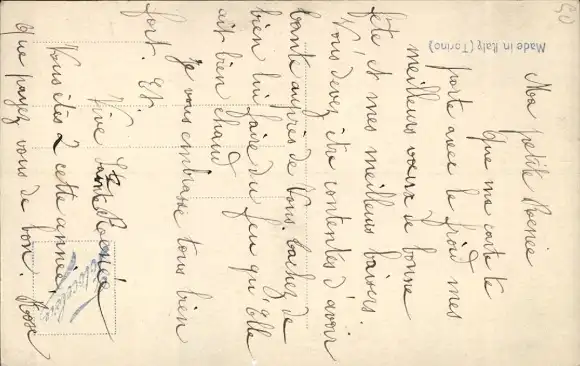 Ma petite Renée
Que ma carte te
porte avec le froid mes
meilleurs vœux de bonne
fête et mes meilleurs baisers.
Vous devez être contentes d'avoir
tante auprès de vous. tachez de
bien lui faire du feu qu'elle
ait bien chaud
Je vous embrasse tous bien
fort. Et
Vive Renée
Vous êtes 2 cette année
Que payez vous de bon. Rose
Made in Italy (Torino)